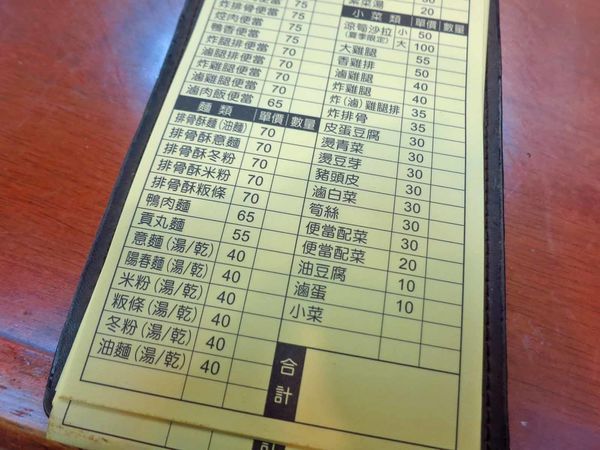 炸排骨便當 75
燒肉便當 75
鴨香便當 75
炸腿排便當 75
滷腿排便當 75
炸雞腿便當 75
滷雞腿便當 75
滷肉飯便當 65
麵類 單價 數量
排骨酥麵(油麵) 70
排骨酥意麵 70
排骨酥冬粉 70
排骨酥米粉 70
排骨酥粄條 70
鴨肉麵 65
貢丸麵 55
意麵(湯/乾) 40
陽春麵(湯/乾) 40
米粉(湯/乾) 40
粄條(湯/乾) 40
冬粉(湯/乾) 40
油麵(湯/乾) 40
紫菜湯 20
小菜類 單價 數量
涼筍沙拉 小 50
(夏季限定) 大 100
大雞腿 55
香雞排 50
滷雞腿 40
炸雞腿 40
炸(滷)雞腿排 35
炸排骨 35
皮蛋豆腐 30
燙青菜 30
燙豆芽 30
豬頭皮 30
滷白菜 30
筍絲 30
便當配菜 30
便當配菜 20
油豆腐 10
滷蛋 10
小菜
合計
計